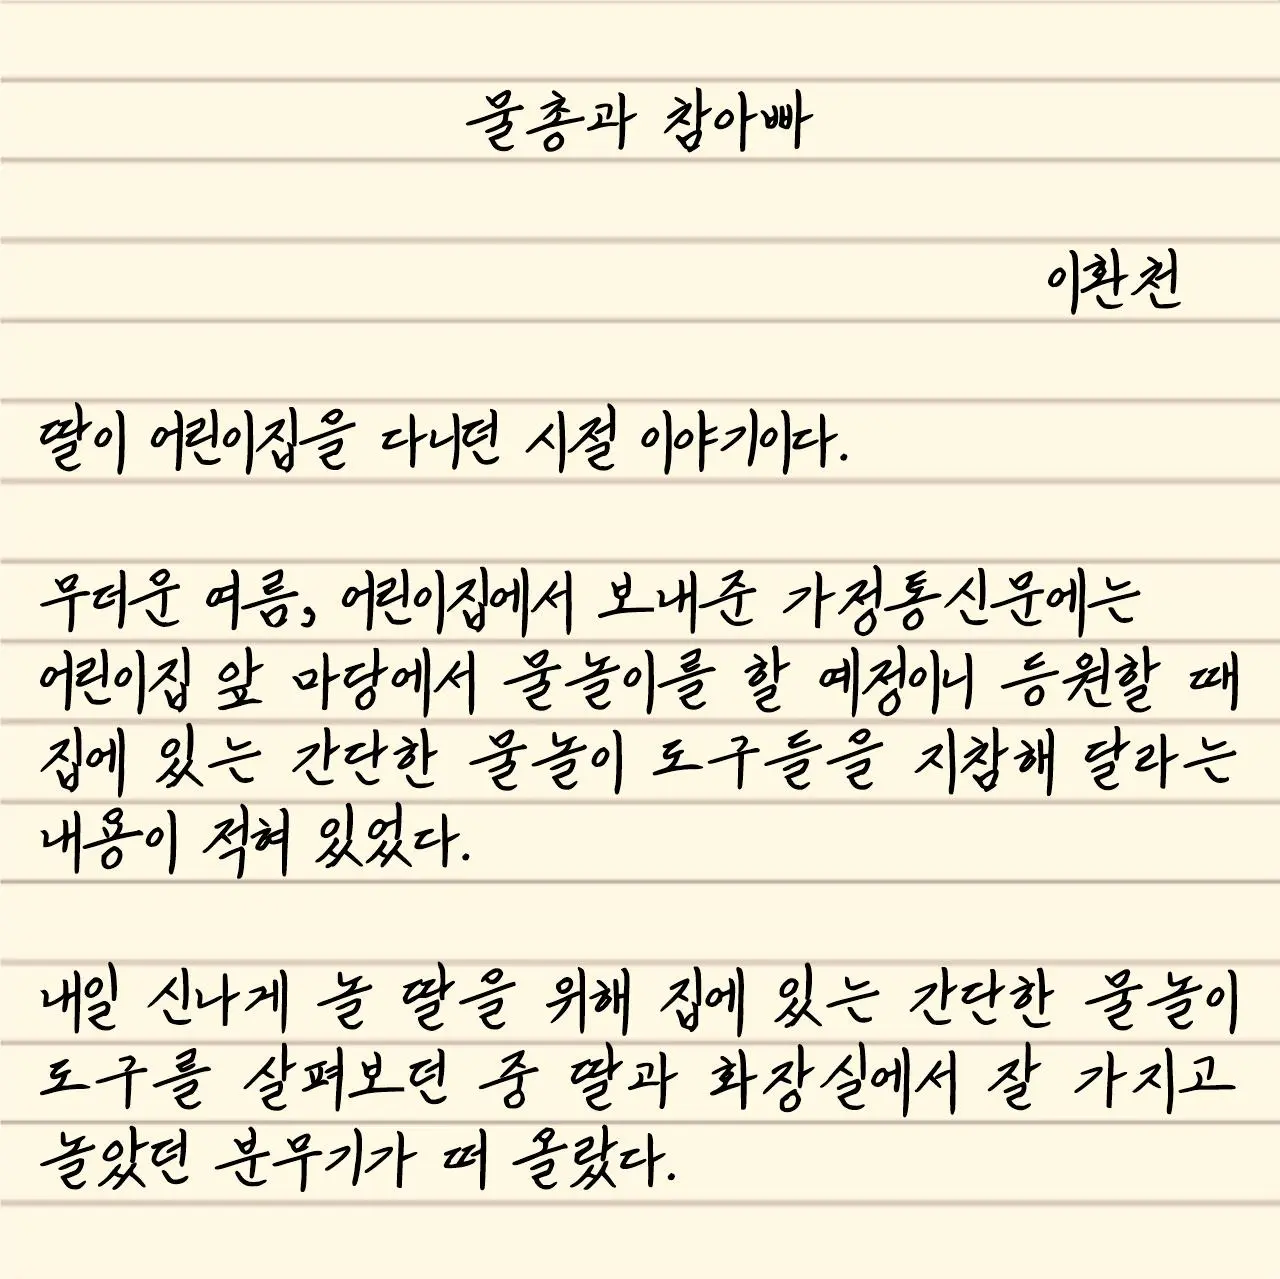 물총과 참아빠
이환천
딸이 어린이집을 다니던 시절 이야기이다.
무더운 여름, 어린이집에서 보내준 가정통신문에는
어린이집 앞 마당에서 물놀이를 할 예정이니 등원할 때
집에 있는 간단한 물놀이 도구들을 지참해 달라는
내용이 적혀 있었다.
내일 신나게 놀 딸을 위해 집에 있는 간단한 물놀이
도구를 살펴보던 중 딸과 화장실에서 잘 가지고
놀았던 분무기가 떠 올랐다.